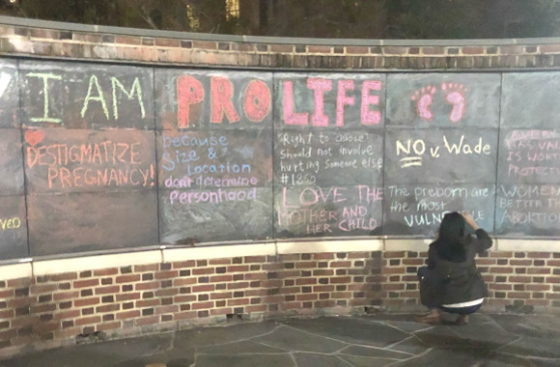 I AM PRO LIFE
DESTIGMATIZE
PREGNANCY!
because
Size &
Location
don't determine
Personhood
"Right to choose"
should not involve
hurting someone else
LOVE THE
MOTHER AND
HER CHILD
NO v. Wade
The preborn are
the most
WOMEN
BETTER TH
ABORTI